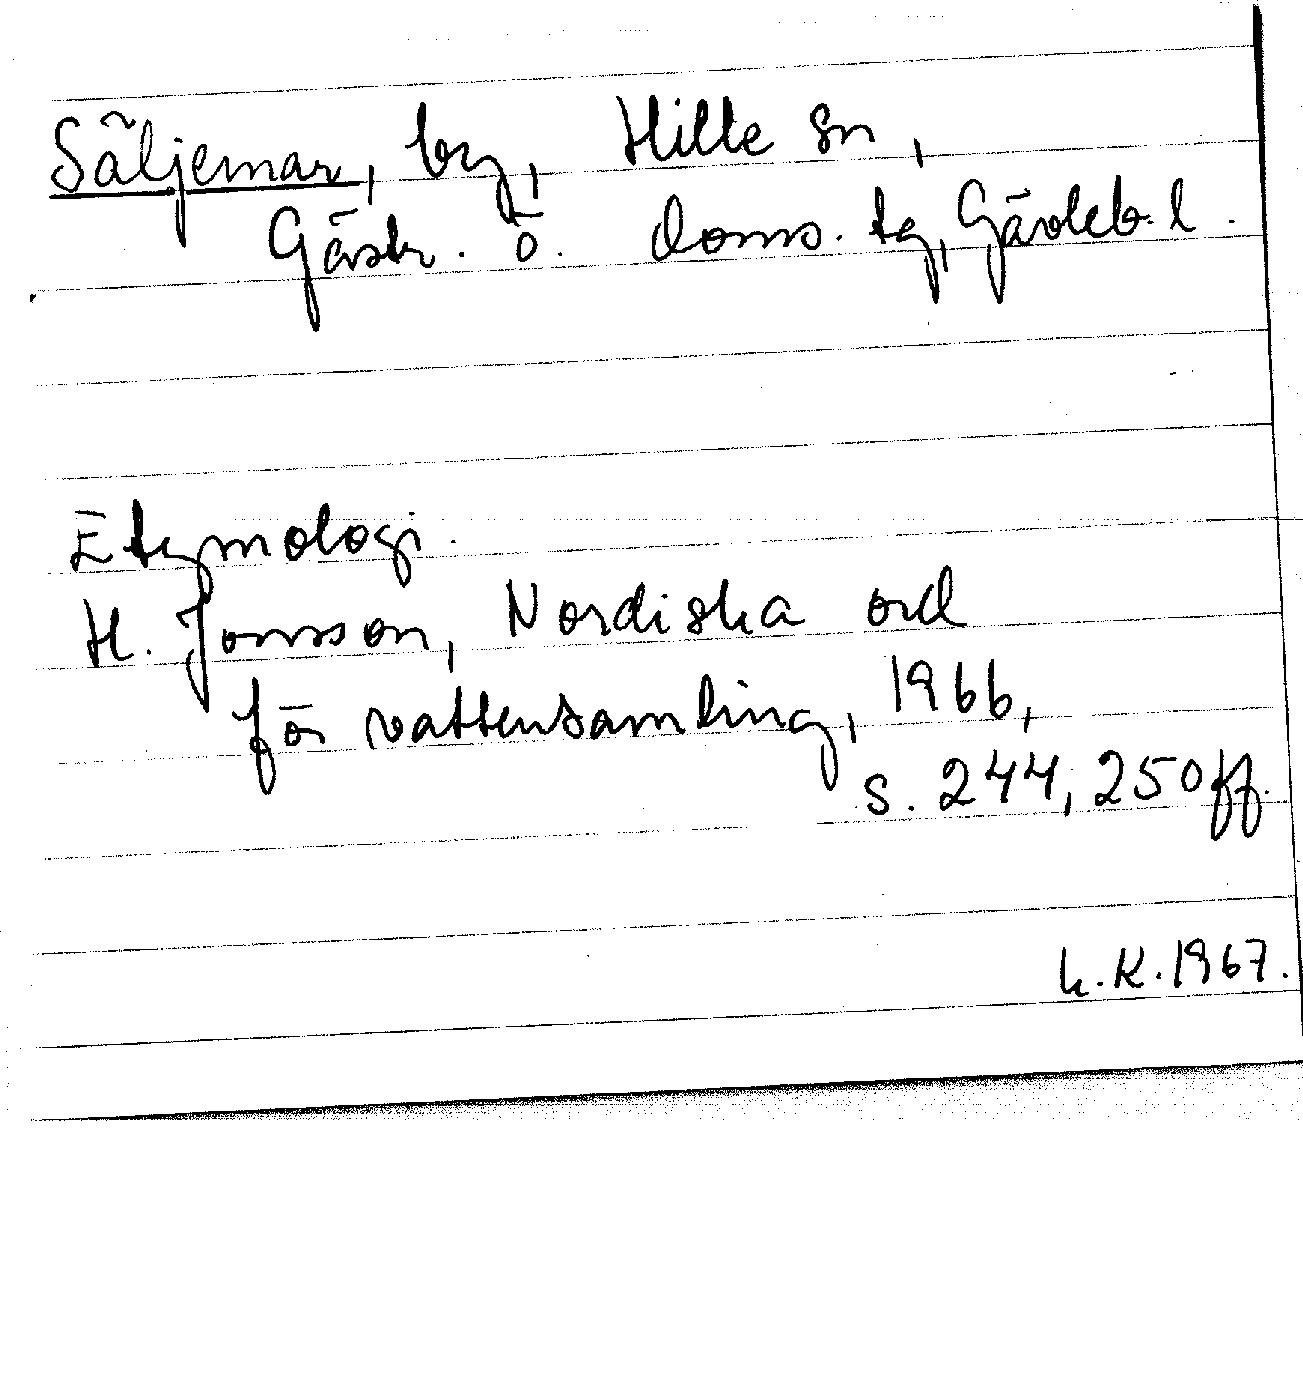 Säljemar, by, Hille sn,
Gästr. ö. doms. tg, Gävleb. l.
Etymologi.
H. Jonsson, Nordiska ord
för vattensamling, 1966,
s. 244, 250ff.
L.K. 1967.